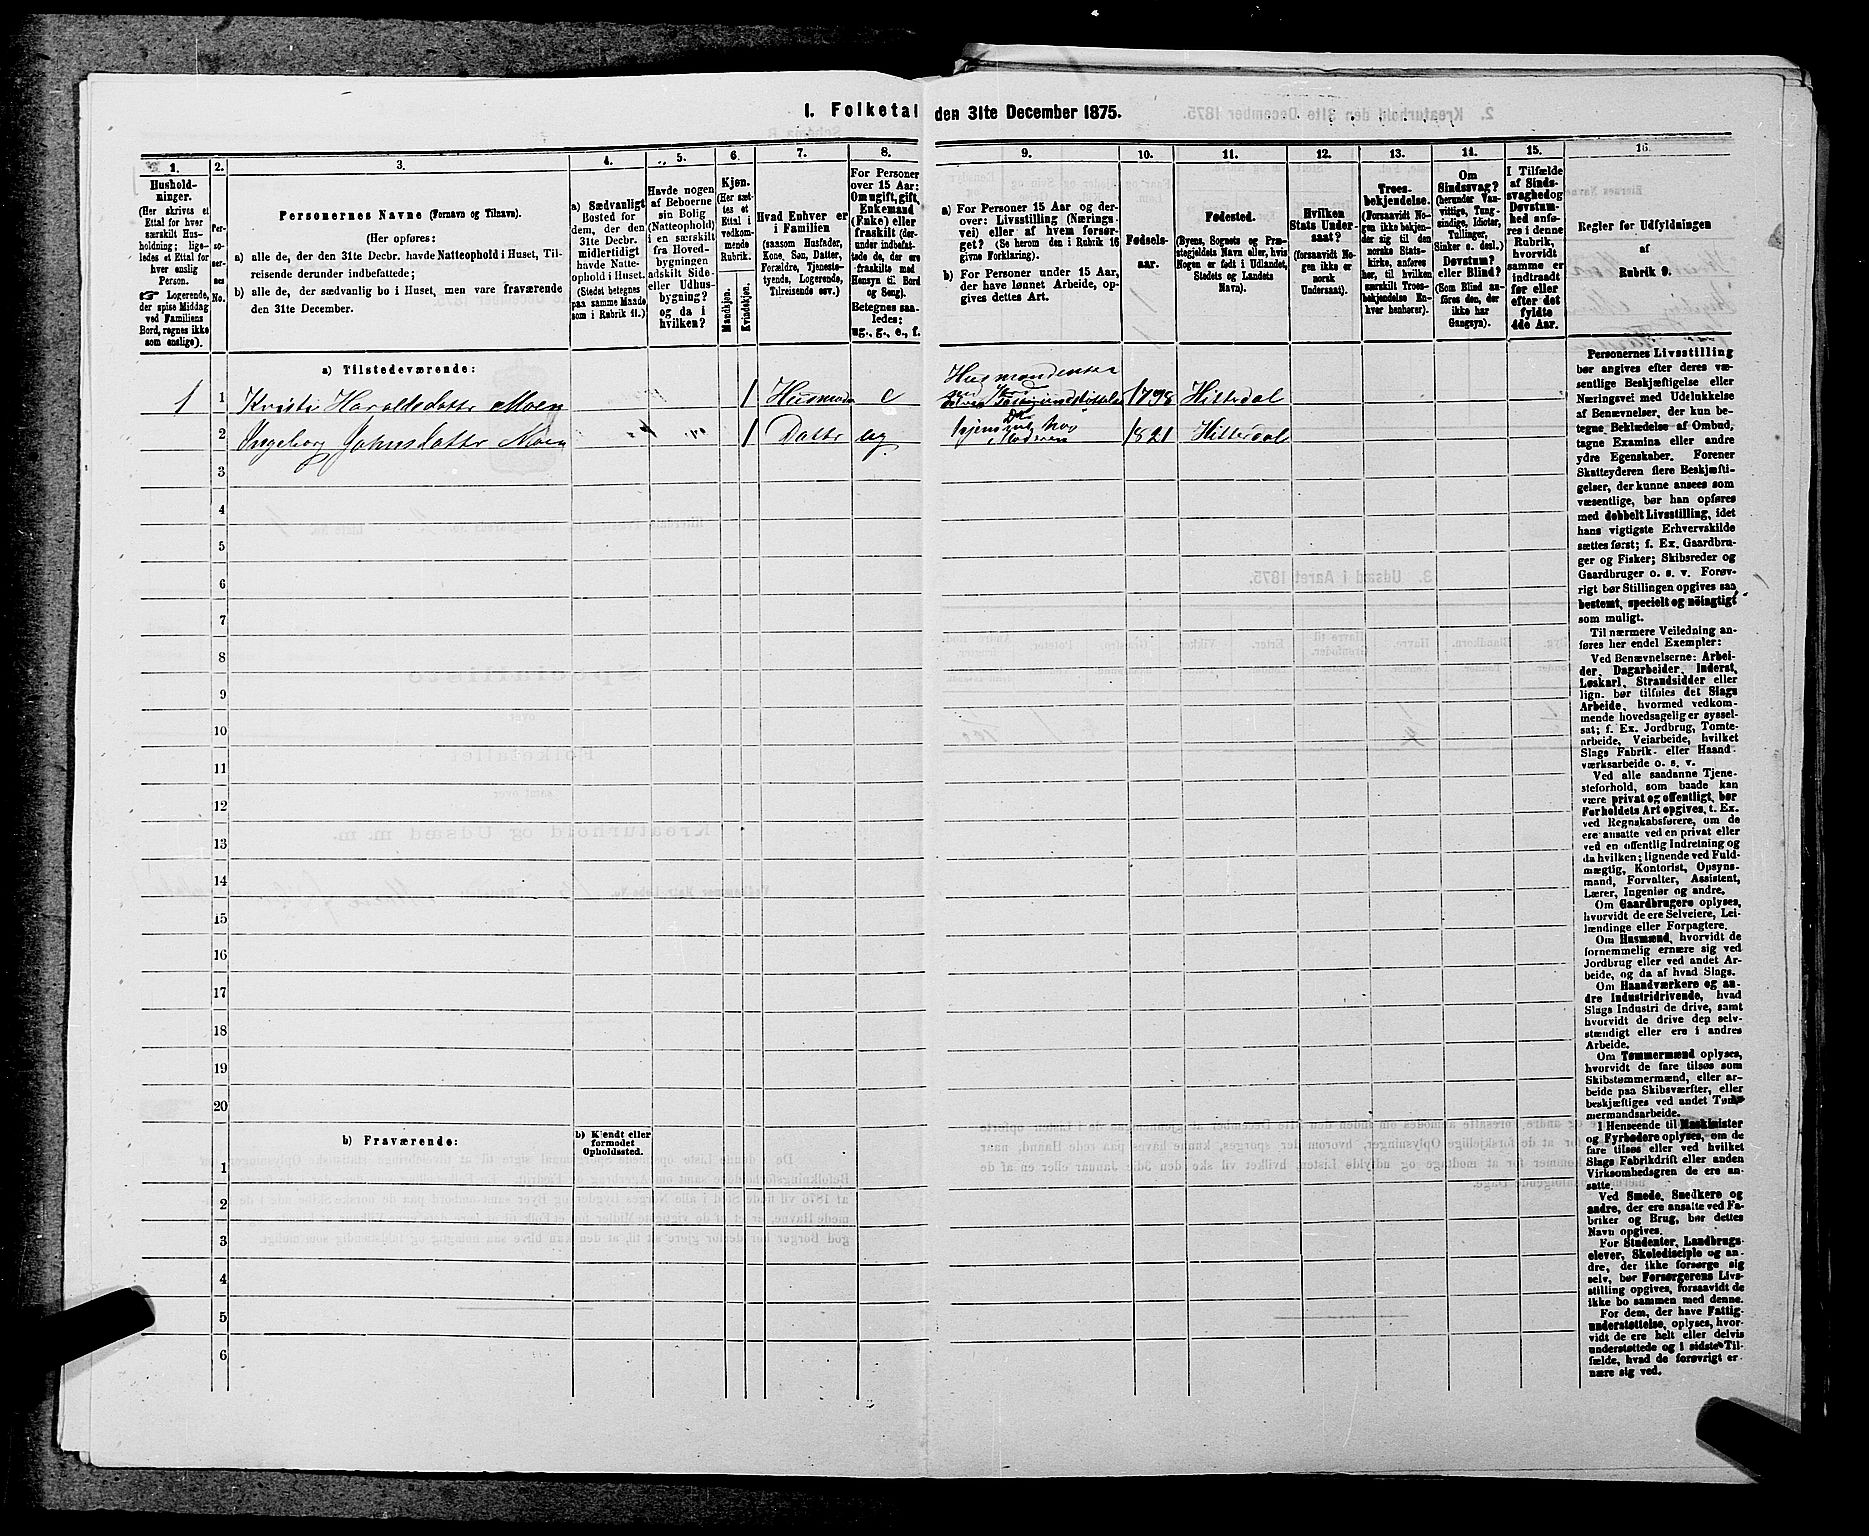 1. Folketal den 31te December 1875.
1.
2.
3.
4.
5.
6.
7.
8.
9.
10.
11.
12.
13.
14.
15.
16.
Hushold-
ninger.
(Her skrives et
Ettal for hver
særskilt Hus-
holdning; lige-
ledes et Ettal for
hver enslig
Person.
☞ Logerende,
der spise Middag
ved Familiens
Bord, regnes ikke
som enslige).
Per-
so-
ner-
nes
No.
Personernes Navne (Fornavn og Tilnavn).
(Her opføres:
a) alle de, der den 31te Decbr. havde Natteophold i Huset, Til-
reisende derunder indbefattede;
b) alle de, der sædvanlig bo i Huset, men vare fraværende
den 31te December.
a) Sædvanligt
Bosted for
dem, der den
31te Decbr.
midlertidigt
havde Natte-
ophold i Huset.
(Stedet betegnes
paa samme Maade
som i Rubrik 11.)
Havde nogen
af Beboerne
sin Bolig
(Natteophold)
i en særskilt
fra Hoved-
bygningen
adskilt Side-
eller Udhus-
bygning?
og da i
hvilken?
Kjøn.
(Her sæt-
tes et
Ettal i
vedkom-
mende
Rubrik.
Mandkjøn.
Kvindekjøn.
Hvad Enhver er
i Familien
(saasom Husfader,
Kone, Søn, Datter,
Forældre, Tjeneste-
tyende, Logerende,
Tilreisende osv.)
For Personer
over 15 Aar:
Om ugift, gift,
Enkemand
(Enke) eller
fraskilt (der-
under indbefat-
tede de, der ere
fraskilte med
Hensyn til Bord
og Seng).
Betegnes saa-
ledes:
ug., g., e., f.
a) For Personer 15 Aar og der-
over: Livsstilling (Nærings-
vei) eller af hvem forsør-
get? (Se herom den i Rubrik 16
givne Forklaring).
b) For Personer under 15 Aar,
der have lønnet Arbeide, op-
gives dettes Art.
Fødsels-
aar.
Fødested.
(Byens, Sognets og Præ-
stegjeldets Navn eller, hvis
Nogen er født i Udlandet,
Stedets og Landets
Navn).
Hvilken
Stats Under-
saat?
(forsaavidt No-
gen ikke er
norsk
Undersaat).
Troes-
bekjendelse.
(Forsaavidt No-
gen ikke bekjen-
der sig til den
norske Stats-
kirke, anføres
her, til hvilken
særskilt Troes-
bekjendelse En-
hver henhører).
Om
Sindssvag?
(herunder Van-
vittige, Tung-
sindige, Idioter,
Tullinger,
Sinker o. desl.)
Døvstum?
eller Blind?
(Som Blind an-
føres den, der
ikke har
Gangsyn).
I Tilfælde
af Sinds-
svaghed og
Døvstum-
hed anfø-
res i denne
Rubrik,
hvorvidt
samme er
indtraadt
før eller
efter det
fyldte
4de Aar.
Regler for Udfyldningen
af
Rubrik 9.
a) Tilstedeværende:
1 1 Kristi Haraldsdatter Moen 1 e 1798 Hitterdal
2 Ingeborg Moen 1 Datter ug 1821 Hitterdal
3
4
5
6
7
8
9
10
11
12
13
14
15
16
17
18
19
20
b) Fraværende:
b) Kjendt eller
formodet
Opholdssted.
1
2
3
4
5
6
Personernes Livsstilling
bør angives efter deres væ-
sentlige Beskjæftigelse eller
Næringsvei med Udelukkelse
af Benævnelser, der kun be-
tegne Beklædelse af Ombud,
tagne Examina eller andre
ydre Egenskaber. Forener
Skatteyderen flere Beskjæfti-
gelser, der kunne ansees som
væsentlige, bør han opføres
med dobbelt Livsstilling, idet
hans vigtigste Erhvervskilde
sættes først; f. Ex. Gaardbru-
ger og Fisker; Skibsreder og
Gaardbruger o. s. v. Forøv-
rigt bør Stillingen opgives saa
bestemt, specielt og nöiagtigt
som muligt.
Til nærmere Veiledning an-
føres her endel Exempler:
Ved Benævnelserne: Arbei-
der, Dagarbeider, Inderst,
Løskarl, Strandsidder eller
lign. bør tilføies det Slags
Arbeide, hvormed vedkom-
mende hovedsagelig er syssel-
sat; f. Ex. Jordbrug, Tomte-
arbeide, Veiarbeide, hvilket
Slags Fabrik- eller Haand-
værksarbeide o. s. v.
Ved alle saadanne Tjene-
steforhold, som baade kan
være privat og offentligt, bør
Forholdets Art opgives, t. Ex.
ved Regnskabsførere, om de
ere ansatte ved en privat eller
ved en offentlig Indretning og
da hvilken; lignende ved Fuld-
mægtig, Kontorist, Opsyns-
mand, Forvalter, Assistent,
Lærer, Ingeniør og andre.
Om Gaardbrugere oplyses,
hvorvidt de ere Selveiere, Lei-
lændinge eller Forpagtere.
Om Husmænd, hvorvidt de
fornemmelig ernære sig ved
Jordbrug eller ved andet Ar-
beide, og da af hvad Slags.
Om Haandværkere og an-
dre Industridrivende, hvad
Slags Industri de drive, samt
hvorvidt de drive den selv-
stændigt eller ere i andres
Arbeide.
Om Tømmermænd oplyses,
hvorvidt de fare tilsøs som
Skibstømmermænd, eller ar-
beide paa Skibsværfter, eller
beskjæftiges ved andet Tøm-
mermandsarbeide.
I Henseende til Maskinister
og Fyrbødere oplyses, om de
fare tilsøs eller ved hvilket
Slags Fabrikdrift eller anden
Virksomhedsgren de ere an-
satte.
Ved Smede, Snedkere og
andre, der ere ansatte ved Fa-
briker og Brug, bør dettes
Navn opgives.
For Studenter, Landbrugs-
elever, Skoledisciple og an-
dre, der ikke forsørge sig
selv, bør Forsørgerens Livs-
stilling opgives, forsaavidt de
ikke bo sammen med denne.
For dem, der have Fattig-
understøttelse, oplyses, hvor-
vidt de ere helt eller delvis
understøttede og i sidste Til-
fælde, hvad de forøvrigt er-
nære sig ved.